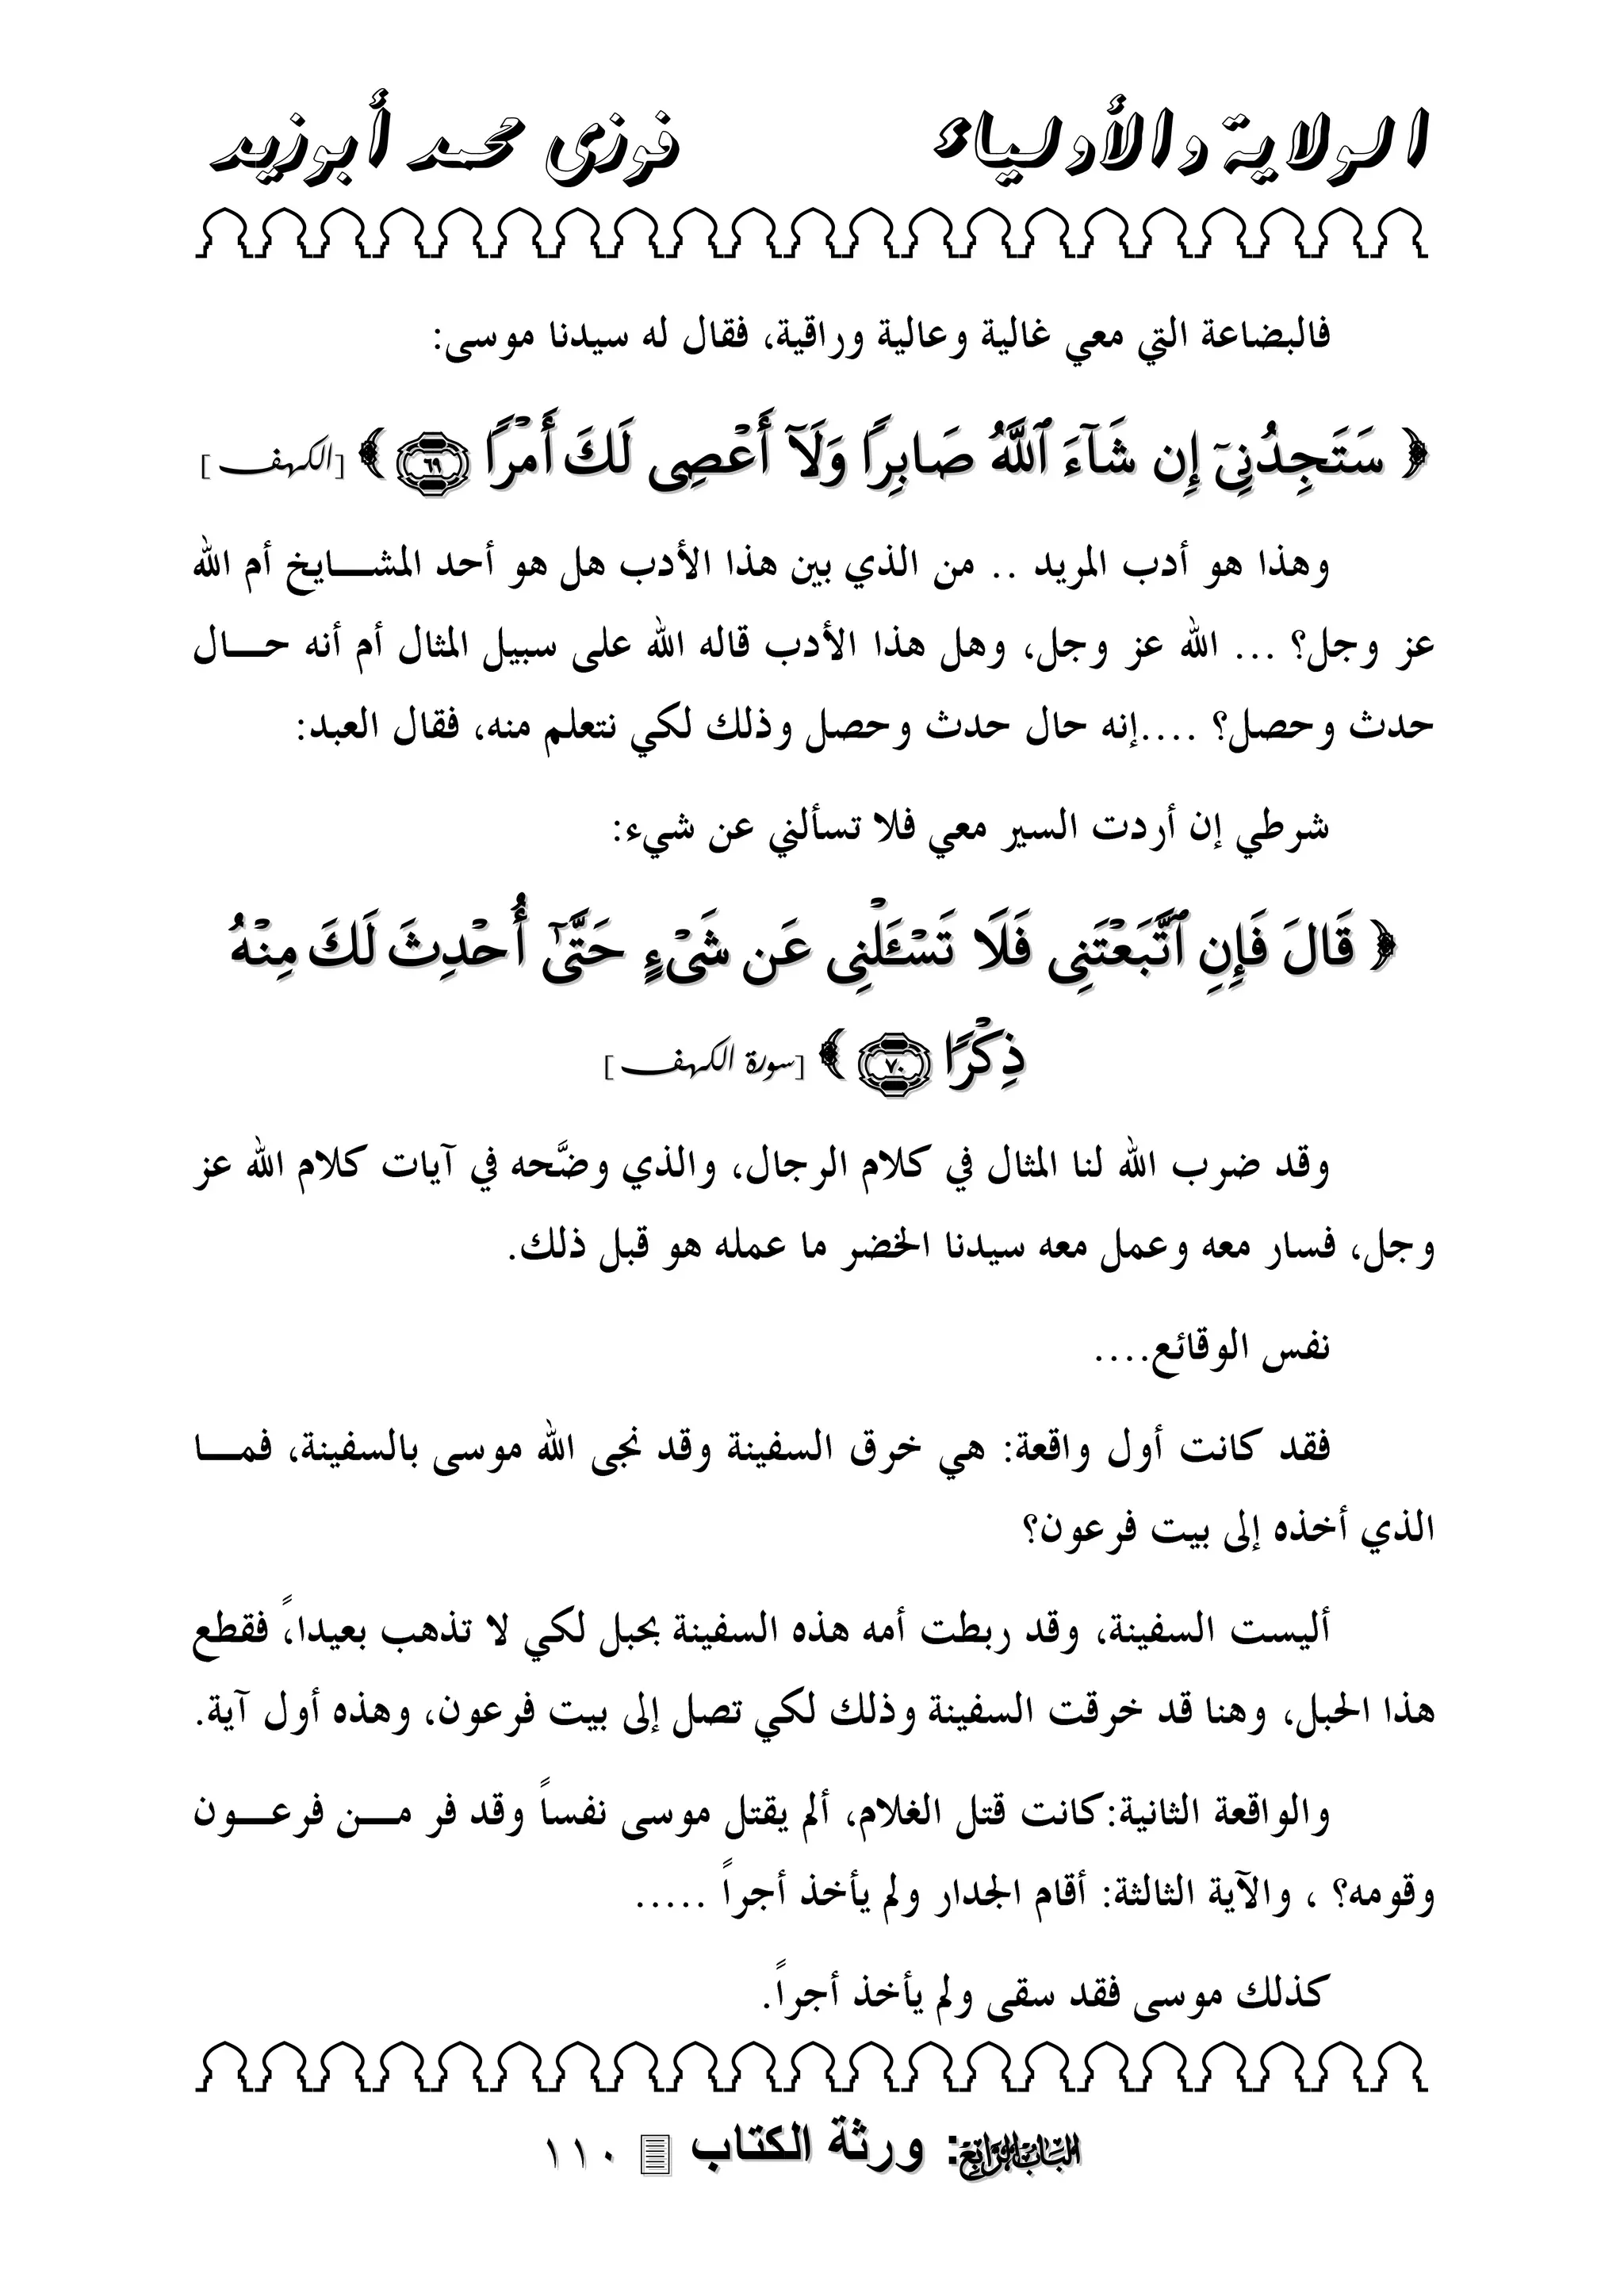 الولاية والأولياء فوزى محمد أبوزيد
فالبضاعة التي معي غالية وعالية وراقية، فقال له سيدنا موسى:
﴿ سَتَجِدُنِىٓ إِن شَآءَ ٱللَّهُ صَابِرًا وَلَآ أَعْصِى لَكَ أَمْرًا ٦٩ ﴾ [الكهف]
وهذا هو أدب المريد .. من الذي بين هذا الأدب هل هو أحد المشايخ أم الله
عز وجل؟ ... الله عز وجل، وهل هذا الأدب قاله الله على سبيل المثال أم أنه حال
حدث وحصل؟ ....إنه حال حدث وحصل وذلك لكي نتعلم منه، فقال العبد:
شرطي إن أردت السير معي فلا تسألني عن شيء:
﴿ قَالَ فَإِنِ ٱتَّبَعْتَنِى فَلَا تَسْـَٔلْنِى عَن شَىْءٍ حَتَّىٰٓ أُحْدِثَ لَكَ مِنْهُ
ذِكْرًا ٧٠ ﴾ [سورة الكهف]
وقد ضرب الله لنا المثال في كلام الرجال، والذي وضَّحه في آيات كلام الله عز
وجل، فسار معه وعمل معه سيدنا الخضر ما عمله هو قبل ذلك.
نفس الوقائع....
فقد كانت أول واقعة: هي خرق السفينة وقد نجى الله موسى بالسفينة، فما
الذي أخذه إلى بيت فرعون؟
أليست السفينة، وقد ربطت أمه هذه السفينة بحبل لكي لا تذهب بعيداً، فقطع
هذا الحبل، وهنا قد خرقت السفينة وذلك لكي تصل إلى بيت فرعون، وهذه أول آية.
والواقعة الثانية:كانت قتل الغلام، ألم يقتل موسى نفساً وقد فر من فرعون
وقومه؟ ، والآية الثالثة: أقام الجدار ولم يأخذ أجراً .....
كذلك موسى فقد سقى ولم يأخذ أجراً.
الباب الرابع: ورثة الكتاب ١١٠